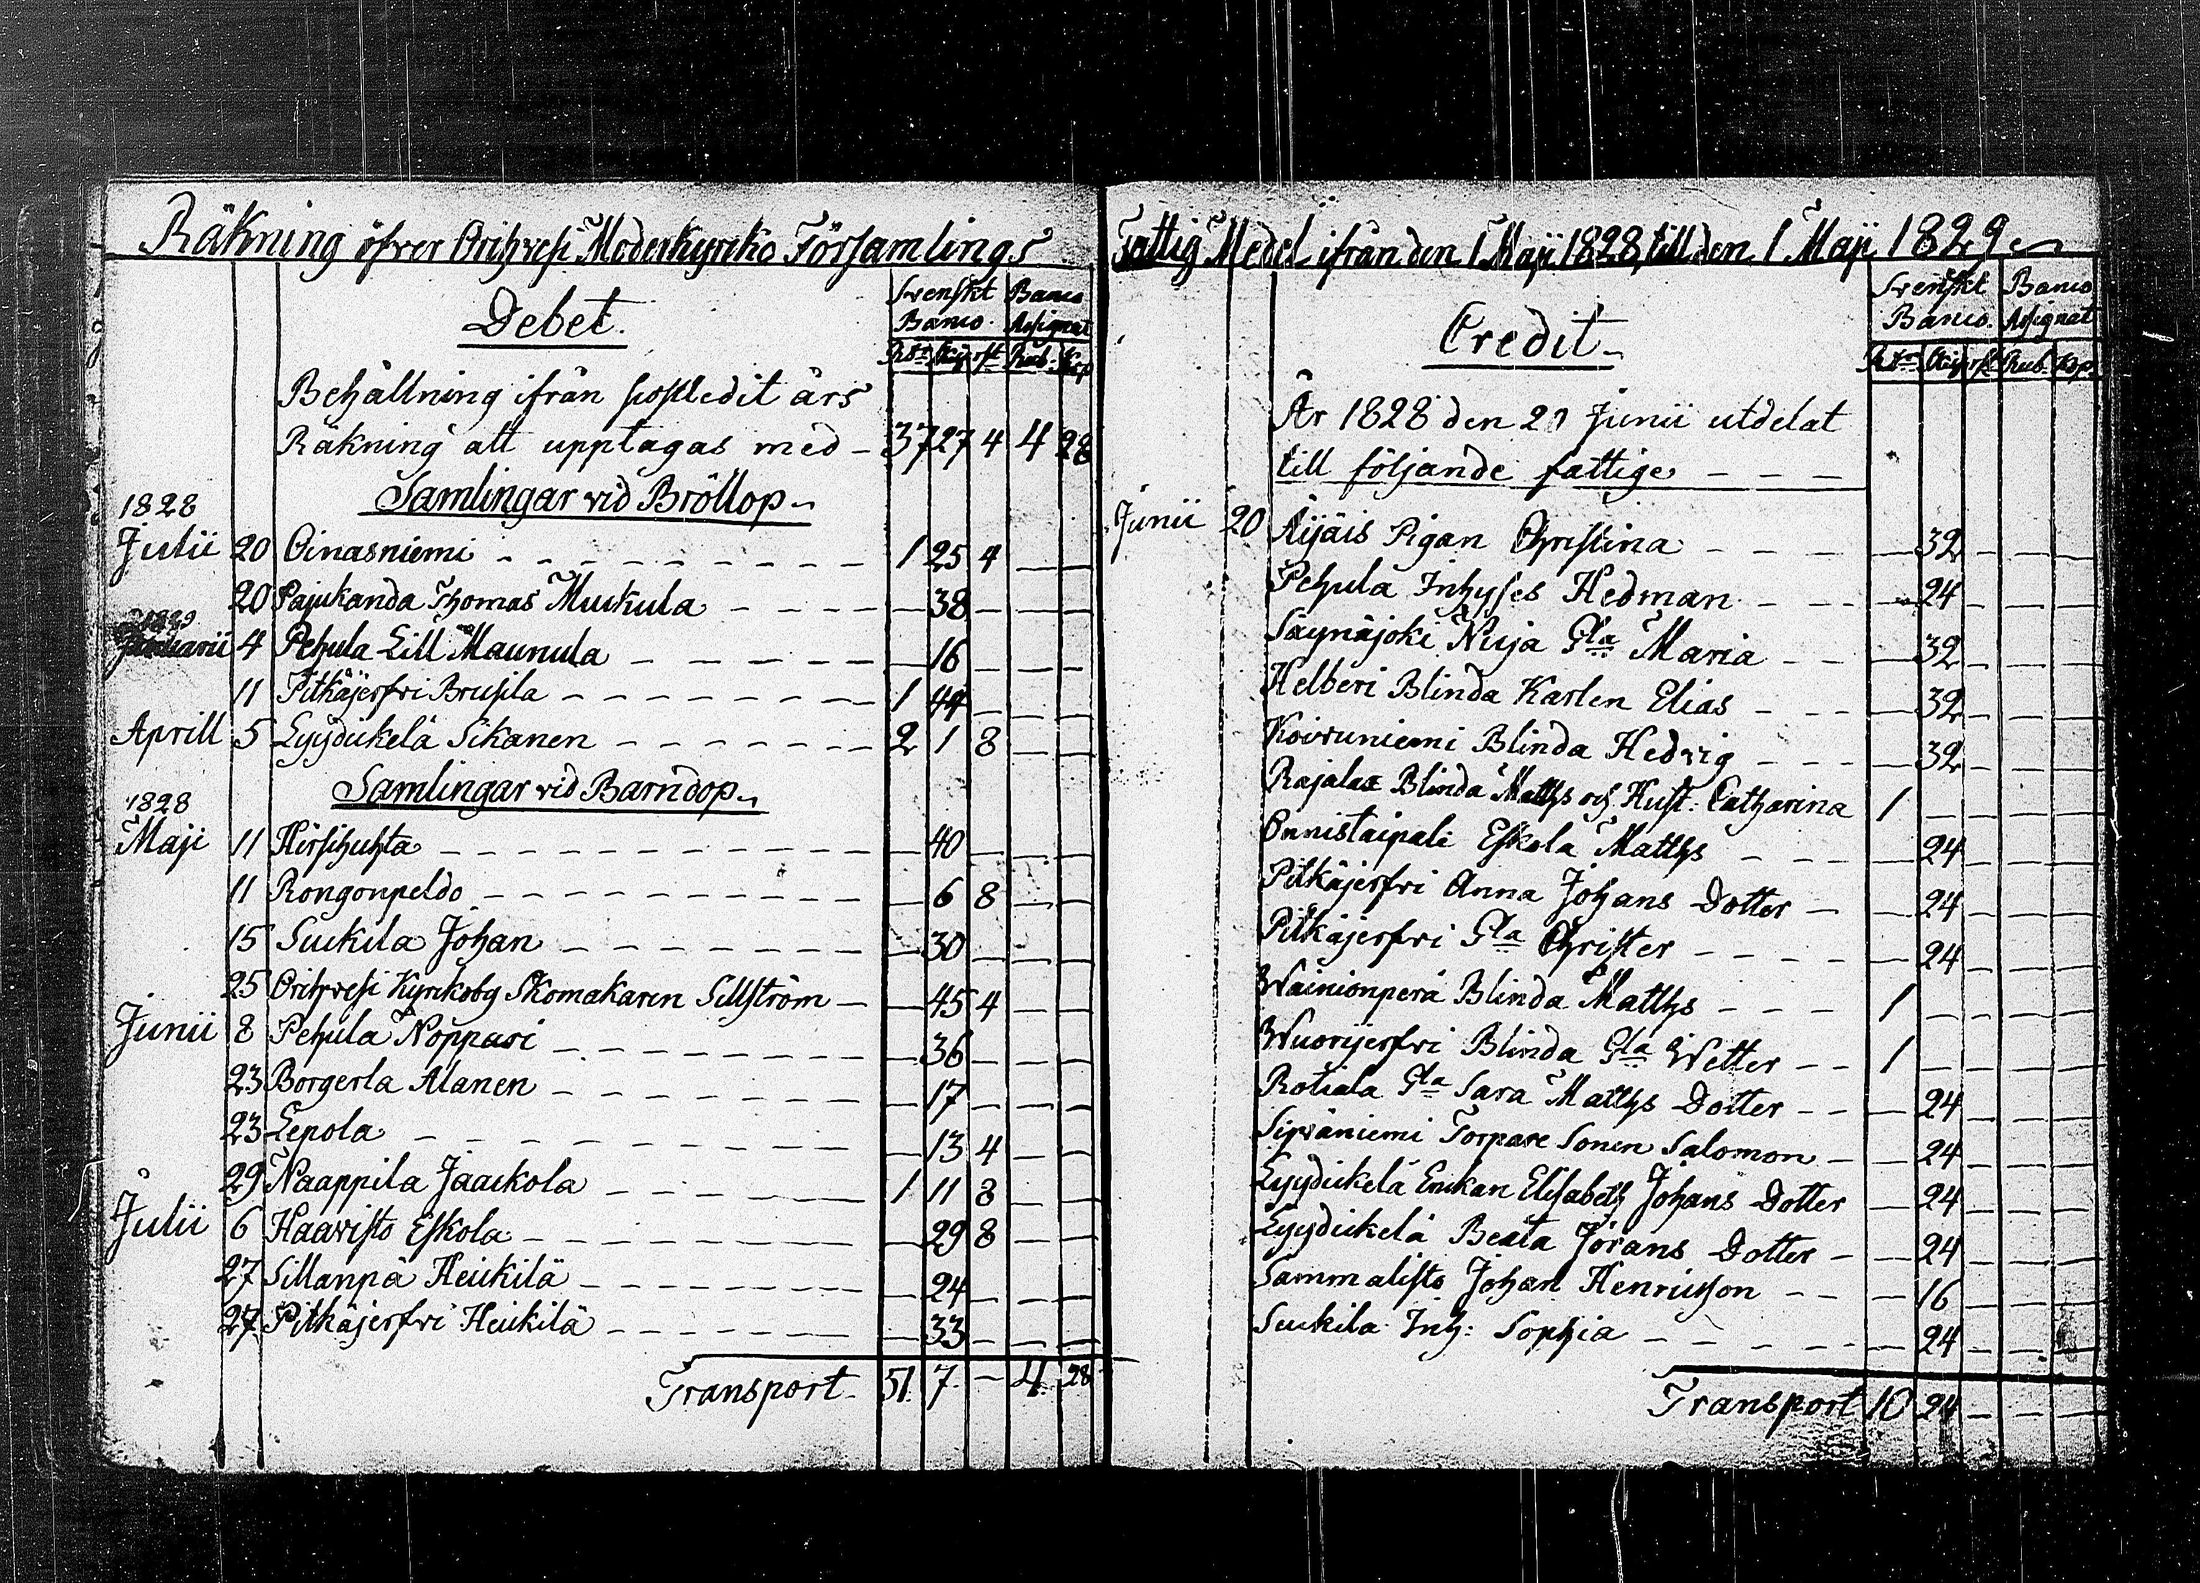 Räkning öfver Orihvesi Moderkyrko Församlings
Debet.
Svenskt Banco
Banco. Assignat
Rdr Skj rst Rub. Kop
Behållning ifrån sistledit års
Räkning att upptagas med - 37 27 4 4 28
Samlingar vid Bröllop
1828
Julii 20 Oinasniemi - 1 25 4 - -
20 Pajukanda Thomas Muckula - - 38 - - -
1829
Januarii 4 Pehula Lill Maunula - - 16 - - -
11 Pitkäjerfvi Brusila - 1 44 - - -
Aprill 5 Lyydickelä Sikanen - 2 1 8 - -
Samlingar vid Barndop
1828
Maji 11 Hirsihuhta - - 40 - - -
11 Rongonpeldo - - 6 8 - -
15 Suckila Johan - - 30 - - -
25 Orihvesi Kyrckoby Skomakaren Sillström - - 45 4 - -
Junii 8 Pehula Noppari - - 36 - - -
23 Borgerla Alanen - - 17 - - -
23 Lepola - - 13 4 - -
29 Naappila Jaackola - 1 11 8 - -
Julii 6 Haavisto Eskola - - 29 8 - -
27 Sillanpä Heickilä - - 24 - - -
27 Pitkäjerfvi Heickilä - - 33 - - -
Transport 51 7 - 4 28
Fattig Medel ifrån den 1 Maji 1828, till den 1 Maji 1829
Credit
Svenskt Banco
Banco. Assignat
Rdr Skj rst Rub. Kop.
År 1828 den 21 Junii utdelat
till följande fattige - - -
Junii 20 Äijäis Pigan Christina - - 32 - - -
Pehula Inhyses Hedman - - 24 - - -
Säynäjoki Nuja Gla Maria - - 32 - - -
Helberi Blinda Karlen Elias - - 32 - - -
Koivuniemi Blinda Hedvig - - 32 - - -
Rajalax Blinda Matths och Hust. Catharina 1 - - - -
Onnistaipale Eskola Matths - - 24 - - -
Pitkäjerfvi Anna Johans Dotter - - 24 - - -
Pitkäjerfvi Gla Christer - - 24 - - -
Wäinionperä Blinda Matths - 1 - - - -
Wuorijerfvi Blinda Gla Wetter - 1 - - - -
Rotiala Gla Sara Matths Dotter - - 24 - - -
Sipväniemi Torpare Sonen Salomon - - 24 - - -
Lyydickelä Enckan Elisabeth Johans Dotter - 24 - - -
Lyydickelä Beata Jörans Dotter - - 24 - - -
Sammalisto Johan Henricsson - - 16 - - -
Suckila Inh: Sophia - - 24 - - -
Transport 10 24 - - -